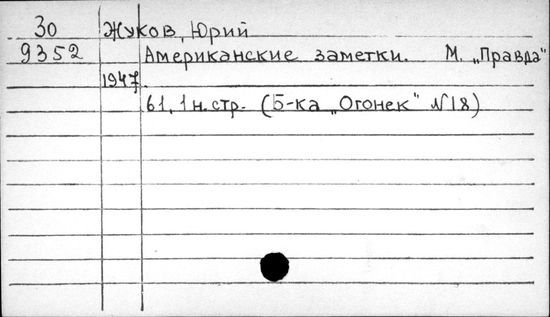 30 Жуков, Юрий
9352 Американские заметки. М. „Правда"
1947.
61, 1 н. стр. (Б-ка „Огонек" №18)